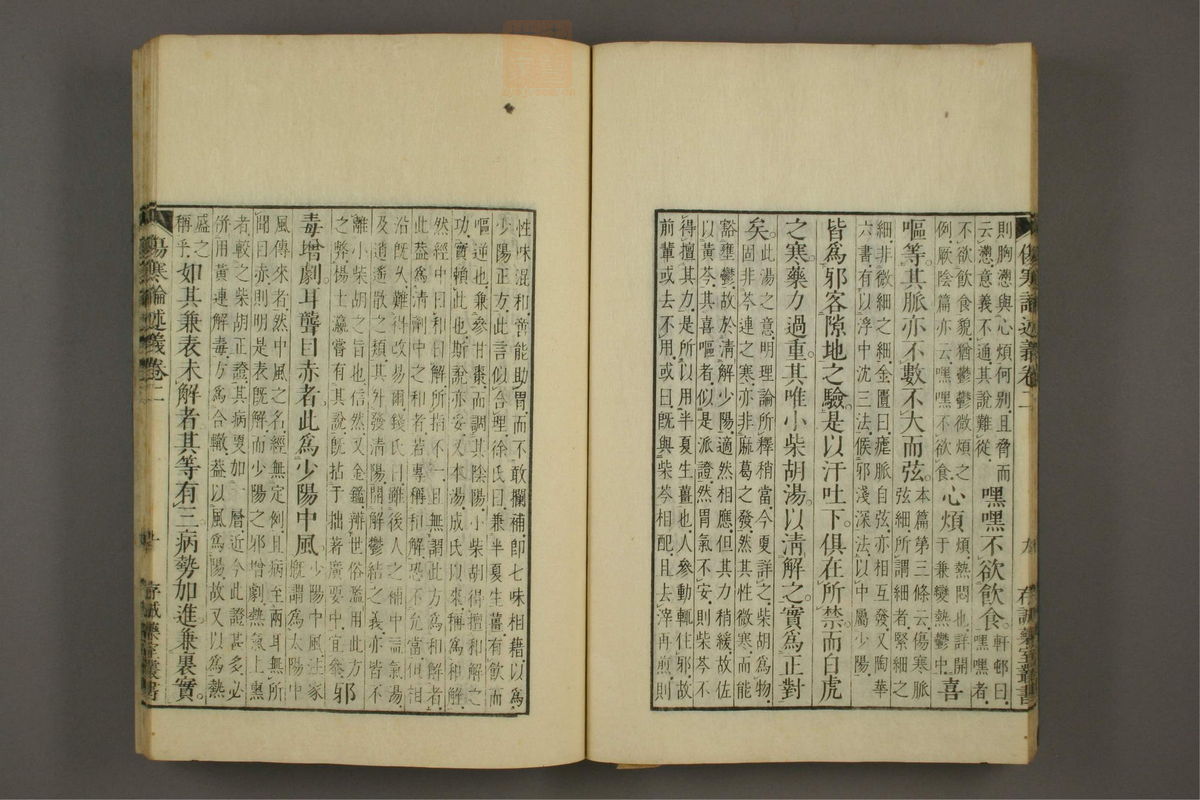 傷寒論述義卷二　九　存誠藥室叢書
則胸懣與心煩何別且脅而
云懣意義不通其說難從
嘿嘿不欲飲食。
軒邨曰
嘿嘿者
不欲飲食貌猶鬱鬱微煩之
例厥陰篇亦云嘿嘿不欲食
心煩
煩熱悶也詳開
于兼變熱鬱中
喜
嘔等。其脈亦不數不大而弦。
本篇第三條云傷寒脈
弦細所謂細者緊細之
細非微細之細金匱曰瘧脈自弦亦相互發又陶華
六書有以浮中沈三法候邪淺深法以中屬少陽
皆爲邪客隙地之驗。是以汗吐下。俱在所禁。而白虎
之寒。藥力過重。其唯小柴胡湯。以清解之。實爲正對
矣。
此湯之意明理論所釋稍當今更詳之柴胡爲物
固非芩連之寒亦非麻葛之發然其性微寒而能
豁壅鬱故於清解少陽適然相應但其力稍緩故佐
以黃芩其喜嘔者似是派證然胃氣不安則柴芩不
得擅其力是所以用半夏生薑也人參動輒住邪故
前輩或去不用或曰既與柴芩相配且去滓再煎則
性味混和善能助胃而不敢攔補卽七味相藉以爲
少陽正方此言似合理徐氏曰兼半夏生薑有飮而
嘔逆也兼參甘棗而調其陰陽小柴胡得擅和解之
功實賴此也斯說亦妥又本湯成氏以來稱爲和解
然經中曰和曰解所指不一且無謂此方爲和解者
此蓋爲清劑中之和者若專稱和解恐不允當但相
沿既久難得改易爾錢氏曰雖後人之補中益氣湯
及逍遙散之類其升發清陽開解鬱結之義亦皆不
離小柴胡之旨也信然又金鑑辨世俗濫用此方
之弊楊士瀛嘗有其說既拈于拙著廣要中宜參
邪
毒增劇。耳聾目赤者。此爲少陽中風。
少陽中風注家
既謂爲太陽中
風傳來者然中風之名經無定例且病至兩耳無所
聞目赤則明是表既解而少陽之邪增劇熱氣上熏
者較之柴胡正證其病更加一層近今此證甚多必
併用黃連解毒方爲合轍蓋以風爲陽故又以爲熱
盛之
稱乎
如其兼表未解者。其等有三。病勢加進。兼裏實。
傷寒論述義卷二　十　存誠藥室叢書